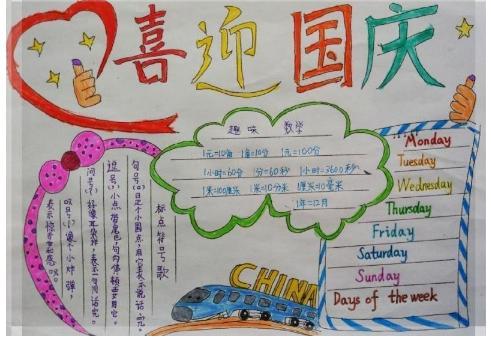 喜迎国庆
趣味 数学
1元=10角 1角=10分 1元=100分
1小时=60分 1分=60秒 1小时=3600秒
1米=100厘米 1米=10分米 厘米=10毫米
1年=12月
标点符号歌
句号(。)是个小圆点,用它表示说话完。
逗号(,)小点带尾巴,句内停顿要用它。
问号(?)好像耳朵样,表示一句问话完。
叹号(!)像个小炸弹,
表示惊讶和感叹。
CHINA
Monday
Tuesday
Wednesday
Thursday
Friday
Saturday
Sunday
Days of the week